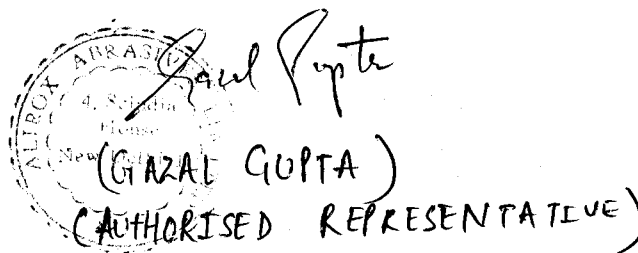 ALIROX ABRASI
4, Scindia
House
New
Gazal Gupta
(GAZAL GUPTA)
(AUTHORISED REPRESENTATIVE)